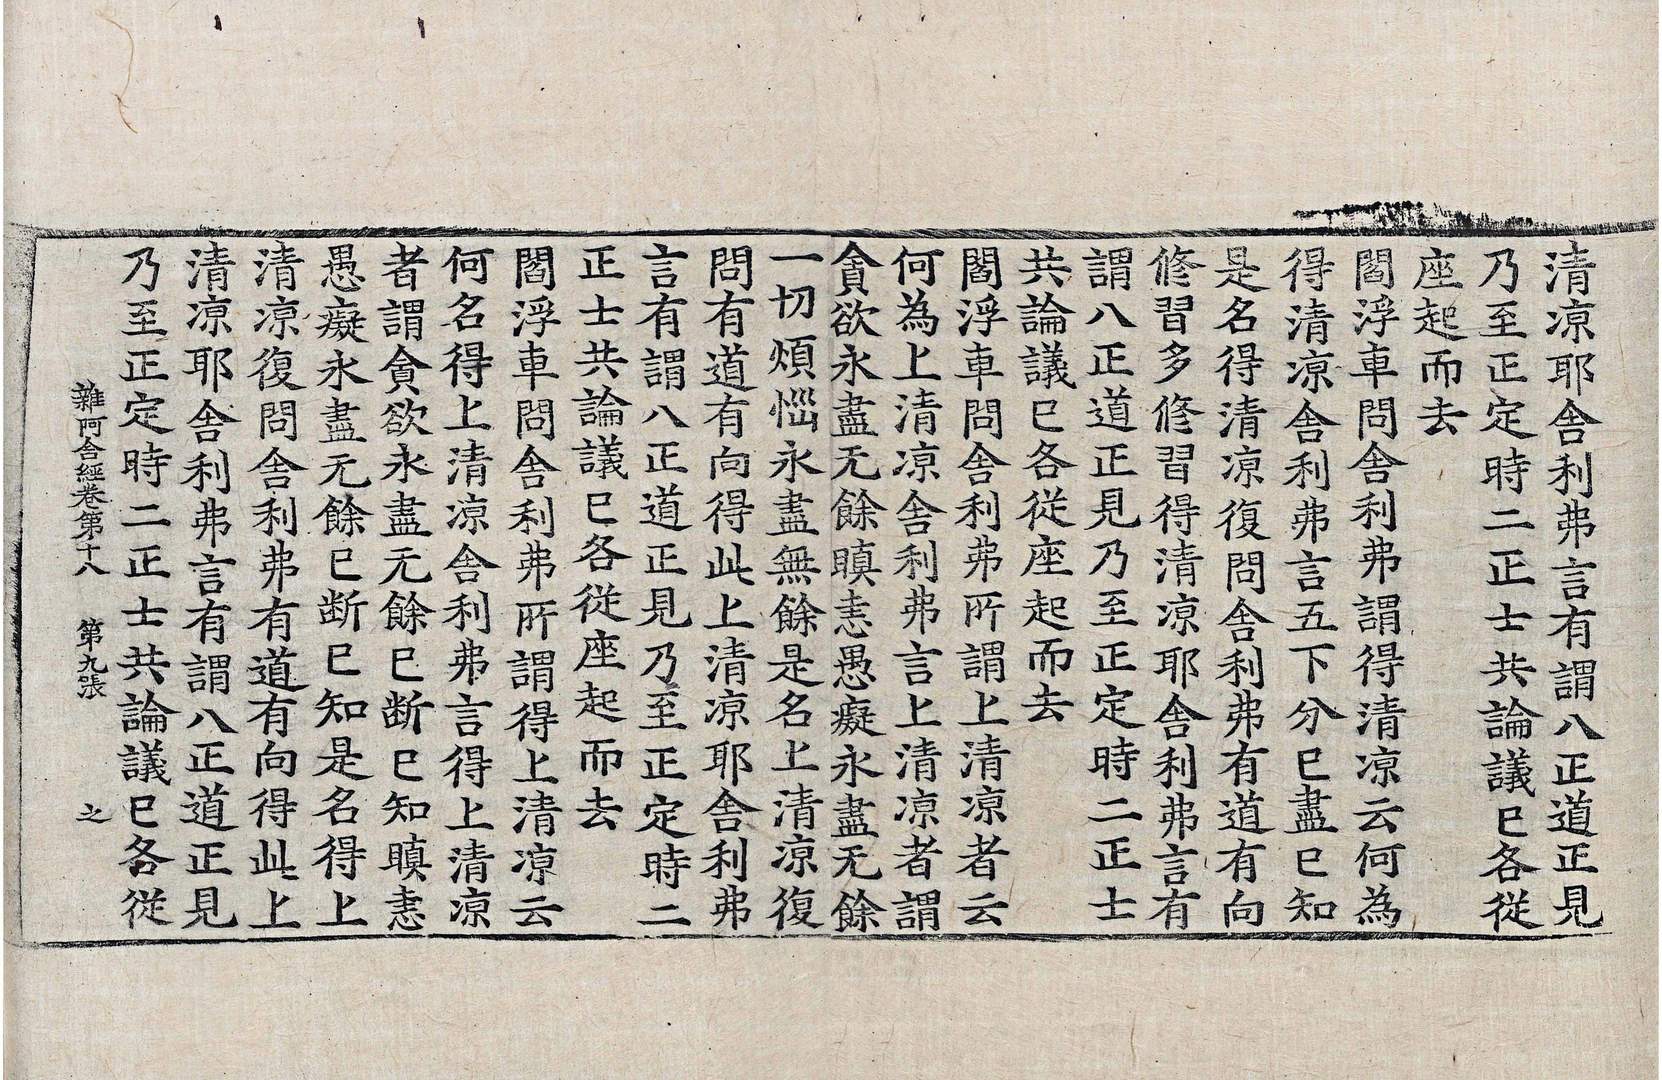 清凉耶舍利弗言有謂八正道正見
乃至正定時二正士共論議已各從
座起而去
閻浮車問舍利弗謂得清凉云何為
得清凉舍利弗言五下分已盡已知
是名得清凉復問舍利弗有道有向
修習多修習得清凉耶舍利弗言有
謂八正道正見乃至正定時二正士
共論議已各從座起而去
閻浮車問舍利弗所謂上清凉者云
何為上清凉舍利弗言上清凉者謂
貪欲永盡无餘瞋恚愚癡永盡无餘
一切煩惱永盡無餘是名上清凉復
問有道有向得此上清凉耶舍利弗
言有謂八正道正見乃至正定時二
正士共論議已各從座起而去
閻浮車問舍利弗所謂得上清凉云
何名得上清凉舍利弗言得上清凉
者謂貪欲永盡无餘已断已知瞋恚
愚癡永盡无餘已断已知是名得上
清凉復問舍利弗有道有向得此上
清凉耶舍利弗言有謂八正道正見
乃至正定時二正士共論議已各從
雜阿含經卷第十八 第九張 之